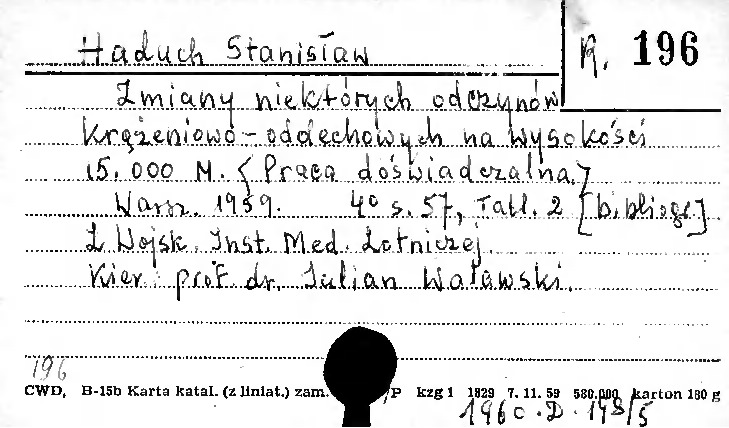 Haduch Stanisław
R. 196
Zmiany niektórych odczynów
krążeniowo-oddechowych na wysokości
15.000 M. {Praca doświadczalna.}
Warsz. 1959. 4° s. 57, Tabl. 2 [bibliogr.]
Z Wojsk. Inst. Med. Lotniczej.
Kier. prof. dr. Julian Walawski.
196
CWD, B-15b Karta katal. (z liniat.) zam. /P kzg 1 1829 7. 11. 59 580.000 karton 180 g
1960.D.148/5